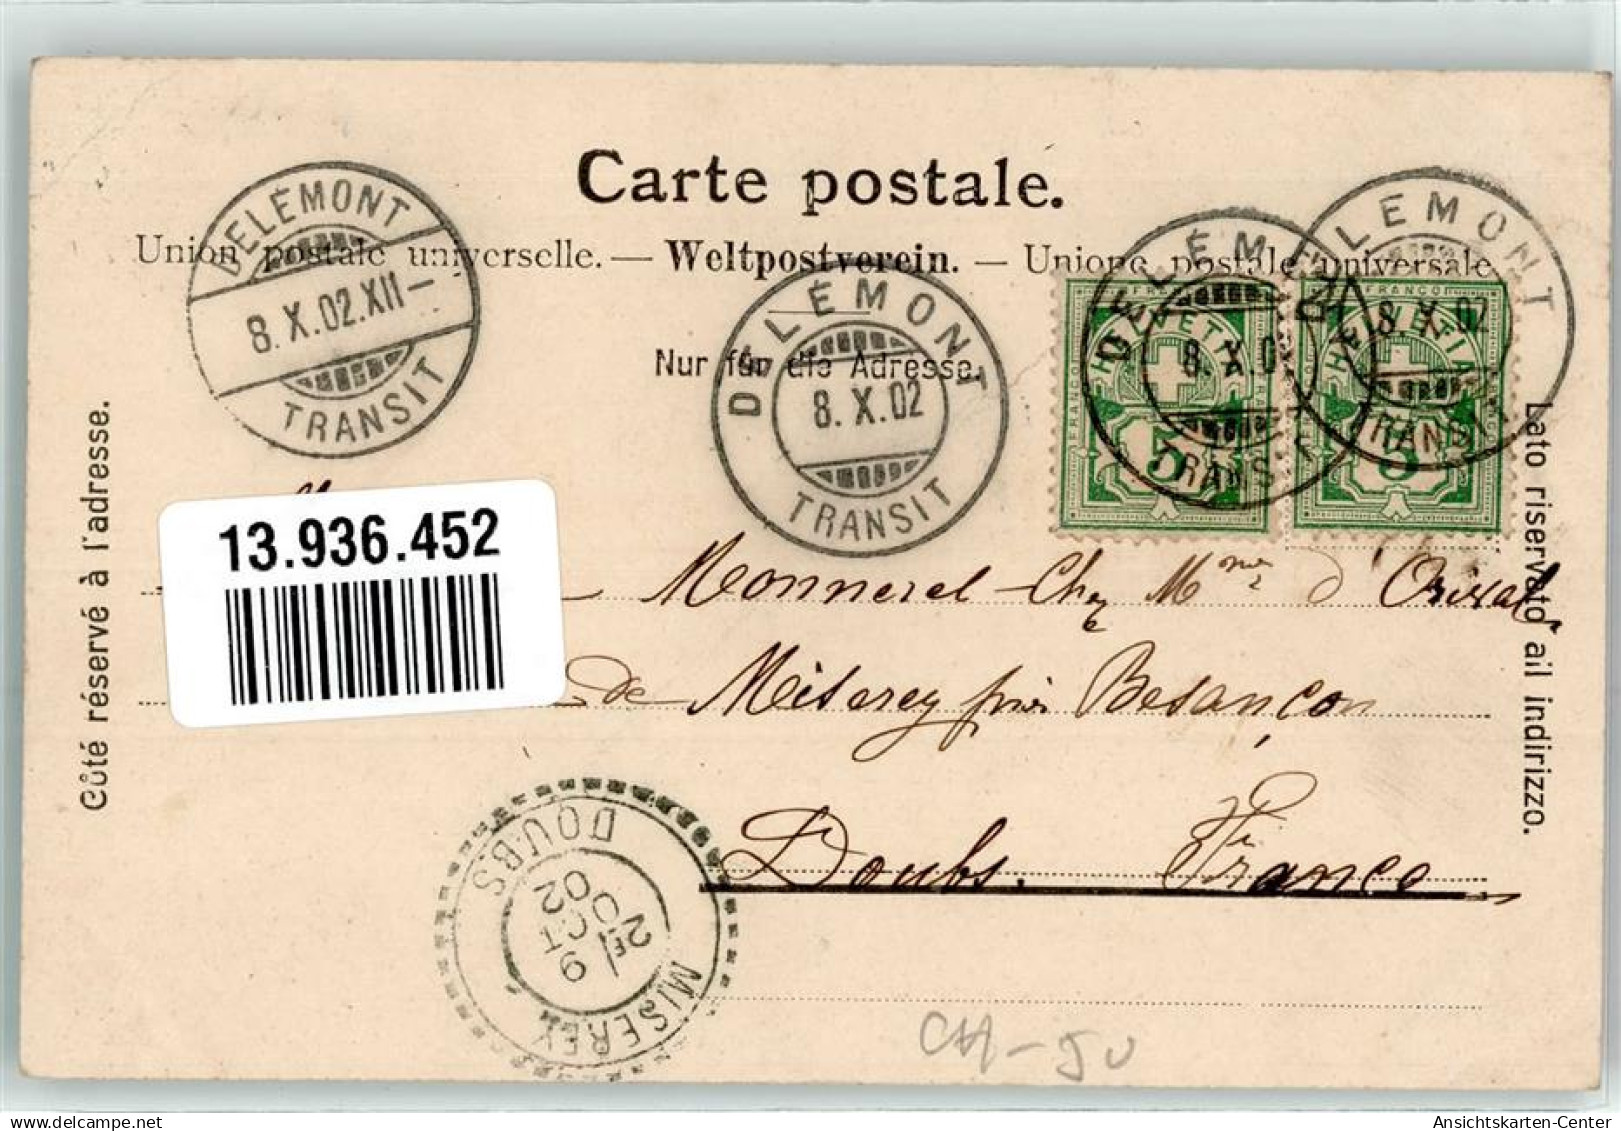 Carte postale.
Union postale universelle. — Weltpostverein. — Unione postale universale
Nur für die Adresse.
Côté réservé à l'adresse.
Lato riservato all indirizzo.
DELÉMONT
8. X. 02. XII –
TRANSIT
DELÉMONT
8. X. 02
TRANSIT
DELÉMONT
8. X. 0
TRANSIT
DELÉMONT
8. X. 02
TRANSIT
FRANCO
HELVETIA
5
FRANCO
HELVETIA
5
13.936.452
Monnerel – Chez Mme d'Orival
de Miserey près Besançon
Doubs. France
MISEREY
2E
9 OCT
02
DOUBS
CH – JU
Ansichtskarten-Center